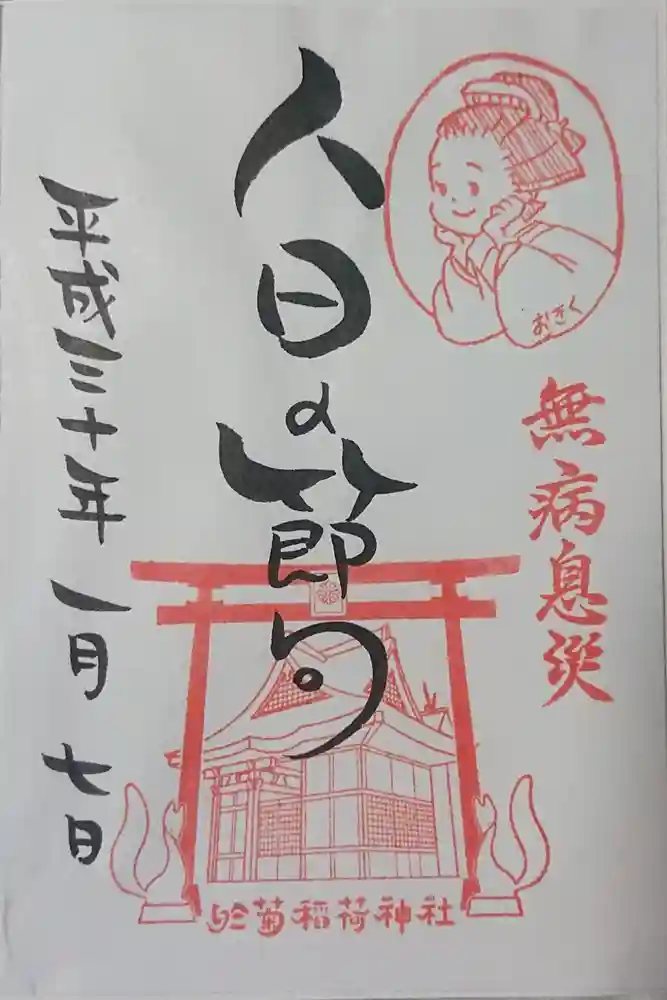 おきく
無病息災
人日の節句
平成三十年 一月 七日
於菊稲荷神社